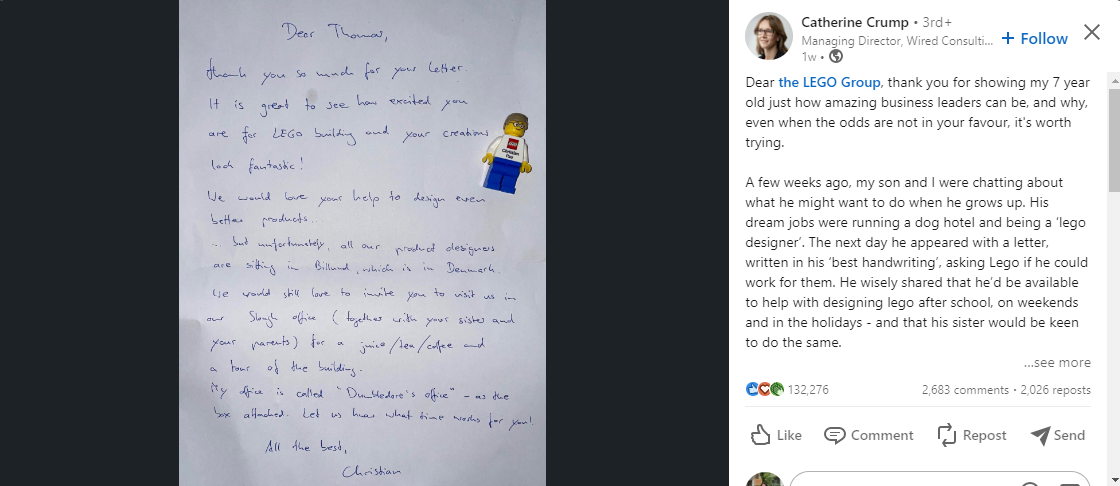 Dear Thomas,
thank you so much for your letter.
It is great to see how excited you
are for LEGO building and your creations
look fantastic!
We would love your help to design even
better products...
... but unfortunately, all our product designers
are sitting in Billund, which is in Denmark.
We would still love to invite you to visit us in
our Slough office (together with your sister and
your parents) for a juice/tea/coffee and
a tour of the building.
My office is called "Dumbledore's office" - as the
box attached. Let us know what time works for you!
All the best,
Christian
LEGO
Christian
Catherine Crump • 3rd+
Managing Director, Wired Consulti...
1w •
+ Follow
Dear the LEGO Group, thank you for showing my 7 year
old just how amazing business leaders can be, and why,
even when the odds are not in your favour, it's worth
trying.
A few weeks ago, my son and I were chatting about
what he might want to do when he grows up. His
dream jobs were running a dog hotel and being a 'lego
designer'. The next day he appeared with a letter,
written in his 'best handwriting', asking Lego if he could
work for them. He wisely shared that he'd be available
to help with designing lego after school, on weekends
and in the holidays - and that his sister would be keen
to do the same.
...see more
132,276
2,683 comments • 2,026 reposts
Like
Comment
Repost
Send